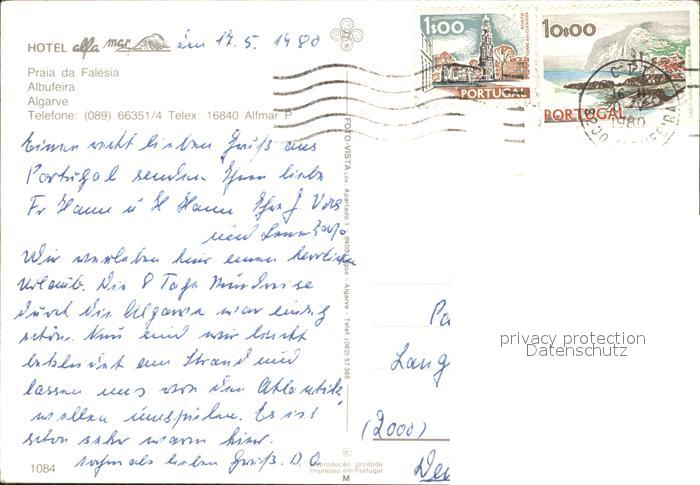 HOTEL alfa mar
am 17. 5. 1980
Praia da Falésia
Albufeira
Algarve
Telefone: (089) 66351/4 Telex: 16840 Alfmar P
1$00
PORTO
PORTUGAL
10$00
PORTUGAL
1980
Einen recht lieben Gruß aus
Portugal senden Ihnen liebe
Fr Hamm u H Hamm Ihre
und
Wir verleben hier einen herrlichen
Urlaub. Die 8 Tage Rundreise
durch die Algarve war einfach
schön. Nun sind wir leicht
bekleidet am Strand und
lassen uns von den Atlantik
wellen umspielen. Es ist
schon sehr warm hier.
nochmals lieben Gruß. D. O.
1084
FOTO-VISTA LDA Apartado 1 Algarve - Telef. (082) 57385
©
Reprodução proibida
Impresso em Portugal
M
Pa
Lang
(2000)
Deu
privacy protection
Datenschutz